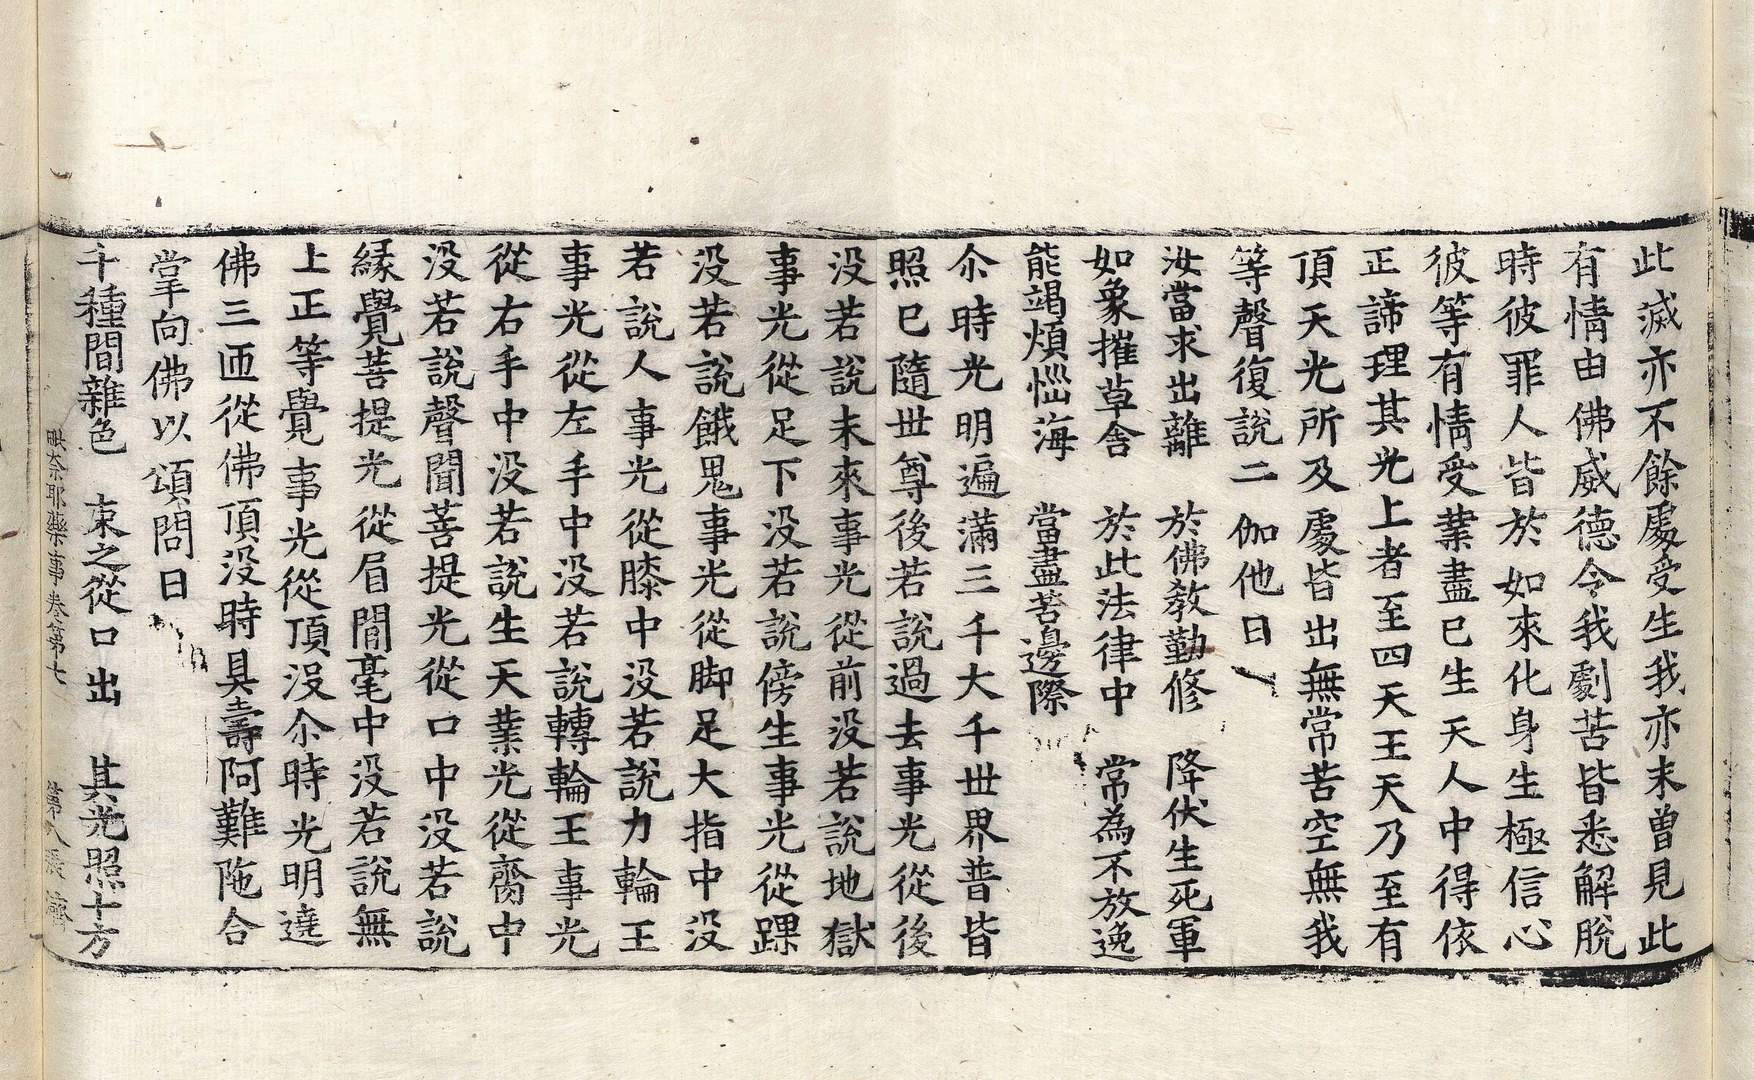 此滅亦不餘處受生我亦未曾見此
有情由佛威德令我劇苦皆悉解脫
時彼罪人皆於如來化身生極信心
彼等有情受業盡已生天人中得依
正諦理其光上者至四天王天乃至有
頂天光所及處皆出無常苦空無我
等聲復說二伽他曰
汝當求出離 於佛教勤修 降伏生死軍
如象摧草舍 於此法律中 常為不放逸
能竭煩惱海 當盡苦邊際
尒時光明遍滿三千大千世界普皆
照已隨世尊後若說過去事光從後
没若說未來事光從前没若說地獄
事光從足下没若說傍生事光從踝
没若說餓鬼事光從脚足大指中没
若說人事光從膝中没若說力輪王
事光從左手中没若說轉輪王事光
從右手中没若說生天業光從臍中
没若說聲聞菩提光從口中没若說
緣覺菩提光從眉間毫中没若說無
上正等覺事光從頂没尒時光明遶
佛三匝從佛頂没時具壽阿難陁合
掌向佛以頌問曰
千種間雜色 束之從口出 其光照十方
毗奈耶藥事卷第七 第八張 濟